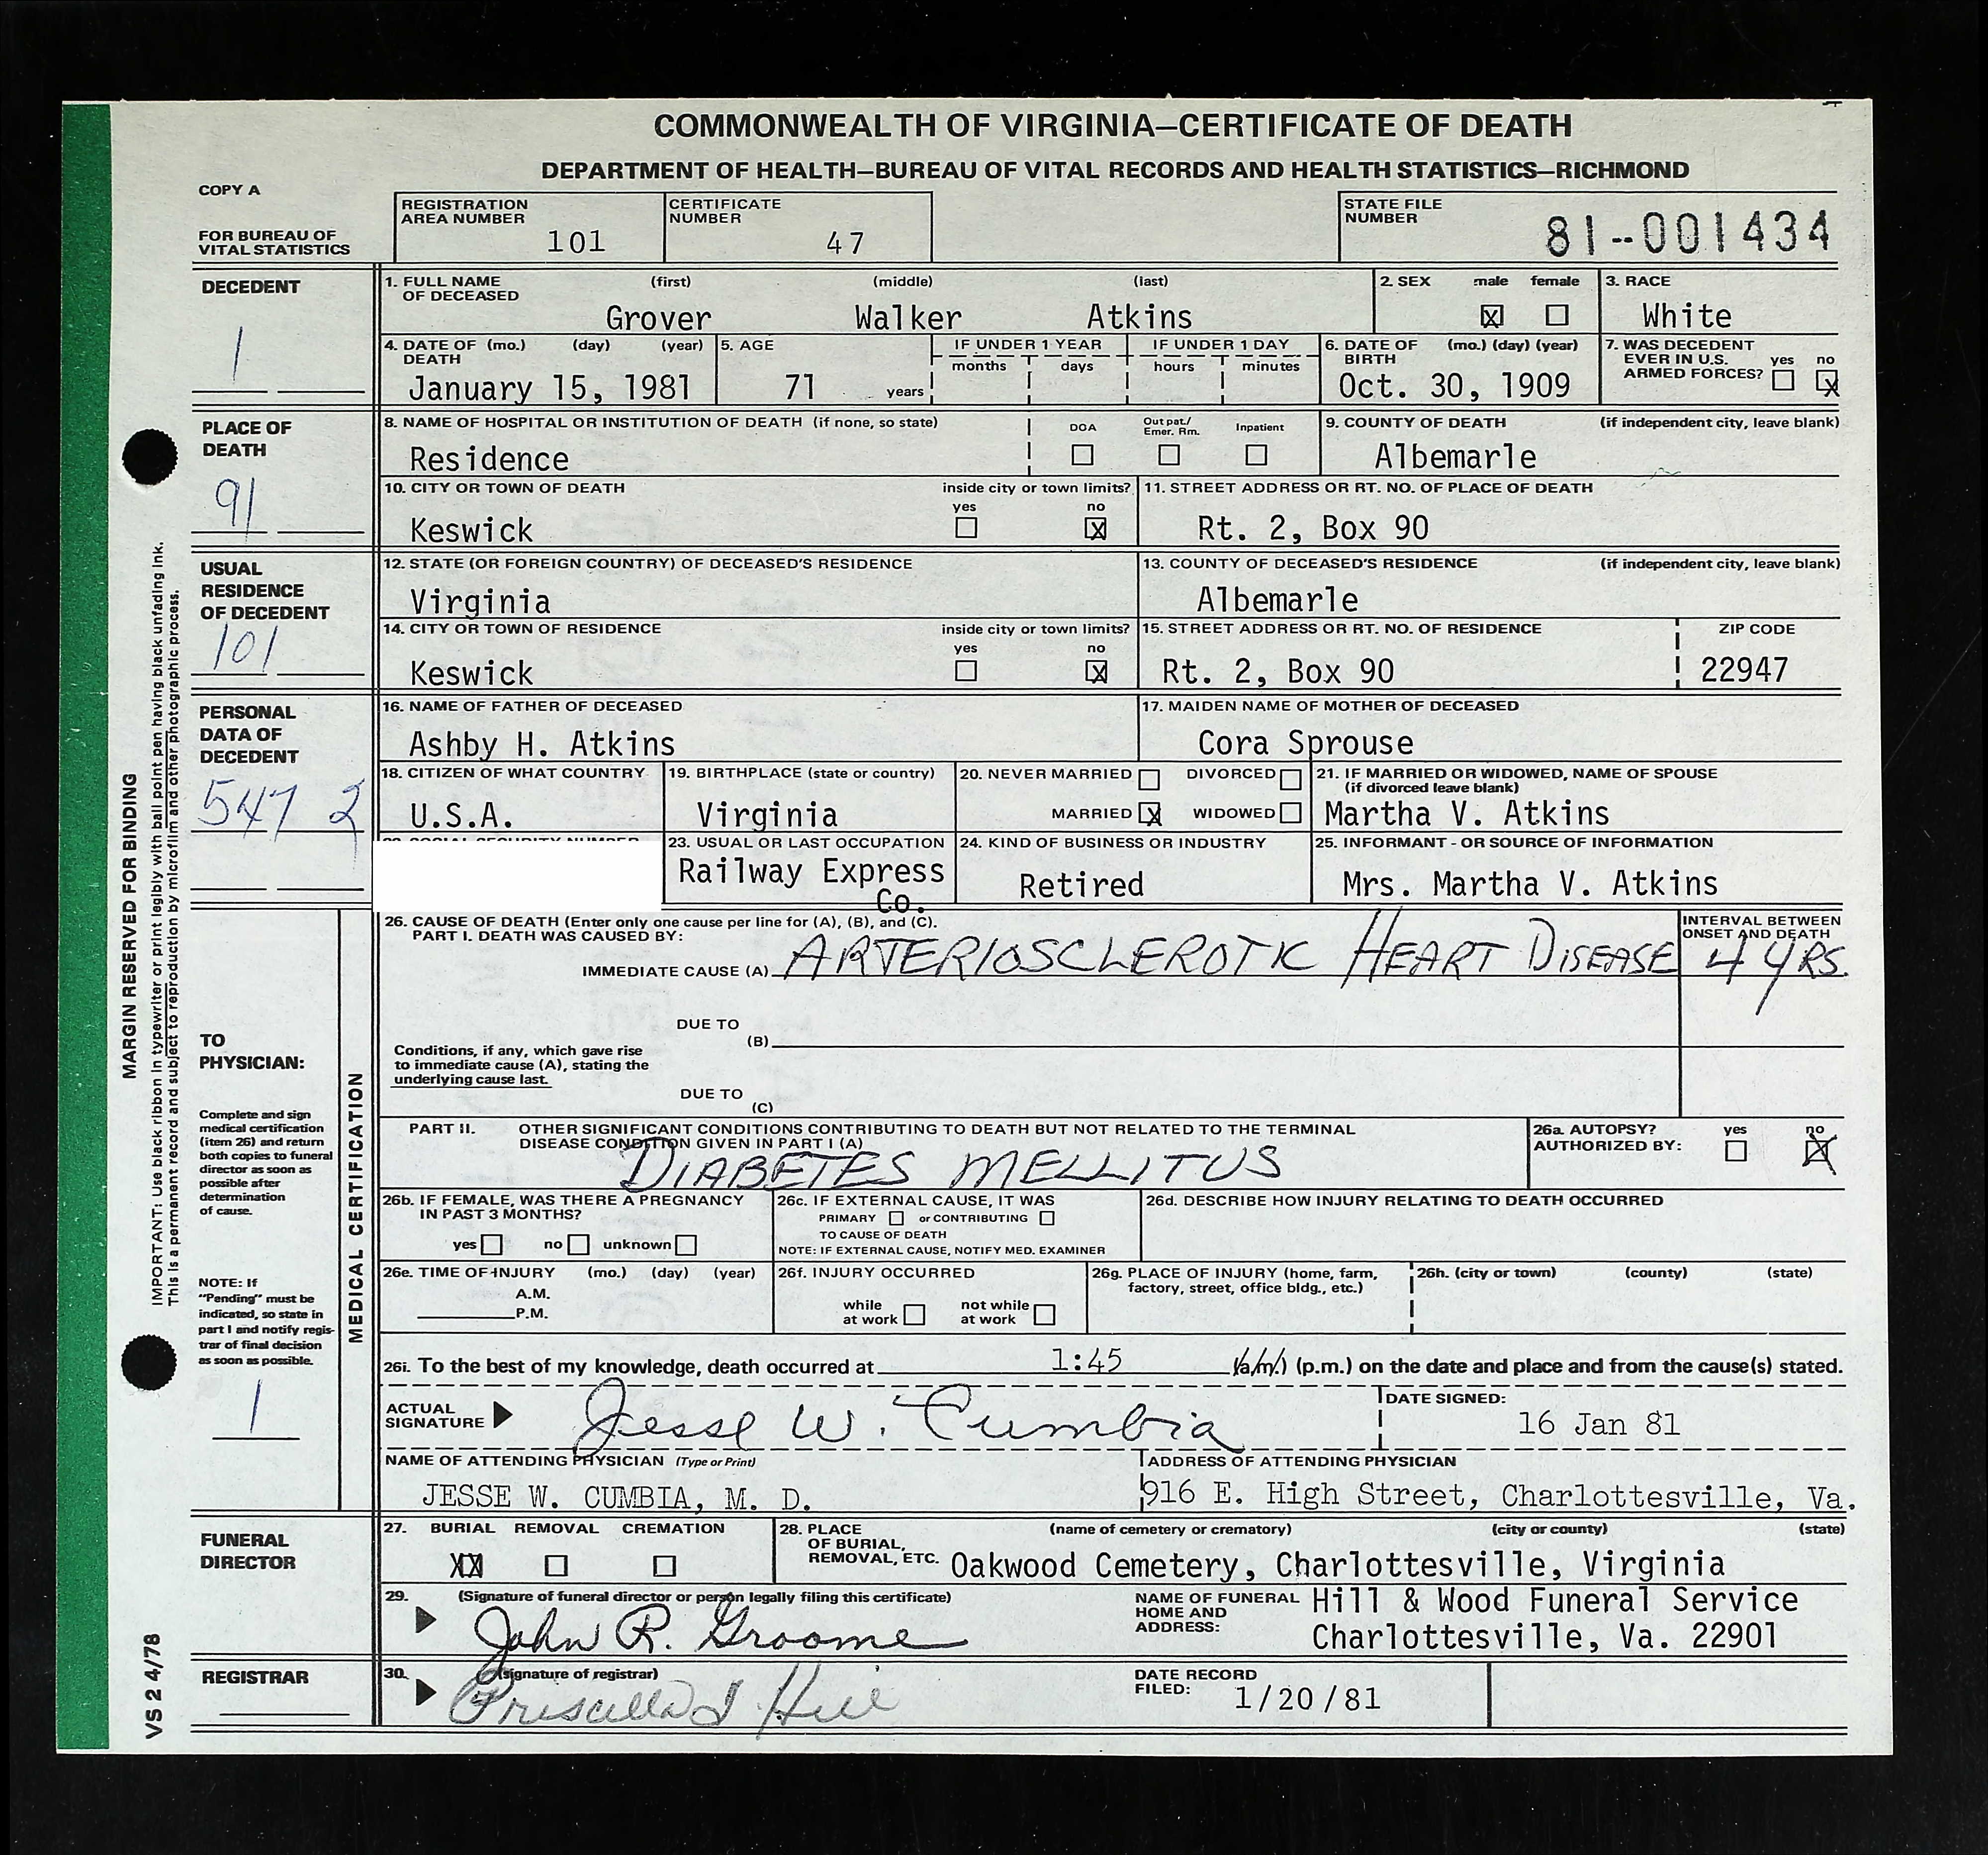 COMMONWEALTH OF VIRGINIA—CERTIFICATE OF DEATH
DEPARTMENT OF HEALTH—BUREAU OF VITAL RECORDS AND HEALTH STATISTICS—RICHMOND
COPY A
FOR BUREAU OF
VITAL STATISTICS
REGISTRATION
AREA NUMBER
101
CERTIFICATE
NUMBER
47
STATE FILE
NUMBER
81--001434
DECEDENT
1
1. FULL NAME (first) (middle) (last)
OF DECEASED
Grover Walker Atkins
2. SEX male female
X
3. RACE
White
4. DATE OF (mo.) (day) (year)
DEATH
January 15, 1981
5. AGE
71 years
IF UNDER 1 YEAR
months days
IF UNDER 1 DAY
hours minutes
6. DATE OF (mo.) (day) (year)
BIRTH
Oct. 30, 1909
7. WAS DECEDENT
EVER IN U.S. yes no
ARMED FORCES? X
PLACE OF
DEATH
91
8. NAME OF HOSPITAL OR INSTITUTION OF DEATH (if none, so state)
Residence
DOA
Out pat./
Emer. Rm.
Inpatient
9. COUNTY OF DEATH (if independent city, leave blank)
Albemarle
10. CITY OR TOWN OF DEATH inside city or town limits?
yes no
Keswick X
11. STREET ADDRESS OR RT. NO. OF PLACE OF DEATH
Rt. 2, Box 90
USUAL
RESIDENCE
OF DECEDENT
101
12. STATE (OR FOREIGN COUNTRY) OF DECEASED'S RESIDENCE
Virginia
13. COUNTY OF DECEASED'S RESIDENCE (if independent city, leave blank)
Albemarle
14. CITY OR TOWN OF RESIDENCE inside city or town limits?
yes no
Keswick X
15. STREET ADDRESS OR RT. NO. OF RESIDENCE ZIP CODE
Rt. 2, Box 90 22947
PERSONAL
DATA OF
DECEDENT
547 2
16. NAME OF FATHER OF DECEASED
Ashby H. Atkins
17. MAIDEN NAME OF MOTHER OF DECEASED
Cora Sprouse
18. CITIZEN OF WHAT COUNTRY
U.S.A.
19. BIRTHPLACE (state or country)
Virginia
20. NEVER MARRIED DIVORCED
MARRIED X WIDOWED
21. IF MARRIED OR WIDOWED, NAME OF SPOUSE
(if divorced leave blank)
Martha V. Atkins
23. USUAL OR LAST OCCUPATION
Railway Express
Co.
24. KIND OF BUSINESS OR INDUSTRY
Retired
25. INFORMANT - OR SOURCE OF INFORMATION
Mrs. Martha V. Atkins
MARGIN RESERVED FOR BINDING
IMPORTANT: Use black ribbon in typewriter or print legibly with ball point pen having black unfading ink.
This is a permanent record and subject to reproduction by microfilm and other photographic process.
TO
PHYSICIAN:
Complete and sign
medical certification
(item 26) and return
both copies to funeral
director as soon as
possible after
determination
of cause.
NOTE: If
"Pending" must be
indicated, so state in
part I and notify regis-
trar of final decision
as soon as possible.
1
MEDICAL CERTIFICATION
26. CAUSE OF DEATH (Enter only one cause per line for (A), (B), and (C).
PART I. DEATH WAS CAUSED BY:
IMMEDIATE CAUSE (A) ARTERIOSCLEROTIC HEART DISEASE
INTERVAL BETWEEN
ONSET AND DEATH
4 YRS.
DUE TO
(B)
Conditions, if any, which gave rise
to immediate cause (A), stating the
underlying cause last.
DUE TO
(C)
PART II. OTHER SIGNIFICANT CONDITIONS CONTRIBUTING TO DEATH BUT NOT RELATED TO THE TERMINAL
DISEASE CONDITION GIVEN IN PART I (A)
DIABETES MELLITUS
26a. AUTOPSY? yes no
AUTHORIZED BY: X
26b. IF FEMALE, WAS THERE A PREGNANCY
IN PAST 3 MONTHS?
yes no unknown
26c. IF EXTERNAL CAUSE, IT WAS
PRIMARY or CONTRIBUTING
TO CAUSE OF DEATH
NOTE: IF EXTERNAL CAUSE, NOTIFY MED. EXAMINER
26d. DESCRIBE HOW INJURY RELATING TO DEATH OCCURRED
26e. TIME OF INJURY (mo.) (day) (year)
A.M.
P.M.
26f. INJURY OCCURRED
while not while
at work at work
26g. PLACE OF INJURY (home, farm,
factory, street, office bldg., etc.)
26h. (city or town) (county) (state)
26i. To the best of my knowledge, death occurred at 1:45 (a.m.) (p.m.) on the date and place and from the cause(s) stated.
ACTUAL
SIGNATURE Jesse W. Cumbia
DATE SIGNED:
16 Jan 81
NAME OF ATTENDING PHYSICIAN (Type or Print)
JESSE W. CUMBIA, M. D.
ADDRESS OF ATTENDING PHYSICIAN
916 E. High Street, Charlottesville, Va.
FUNERAL
DIRECTOR
27. BURIAL REMOVAL CREMATION
XX
28. PLACE (name of cemetery or crematory) (city or county) (state)
OF BURIAL,
REMOVAL, ETC. Oakwood Cemetery, Charlottesville, Virginia
29. (Signature of funeral director or person legally filing this certificate)
John R. Groome
NAME OF FUNERAL
HOME AND
ADDRESS:
Hill & Wood Funeral Service
Charlottesville, Va. 22901
REGISTRAR
30. (signature of registrar)
Priscilla Hill
DATE RECORD
FILED: 1/20/81
VS 2 4/78